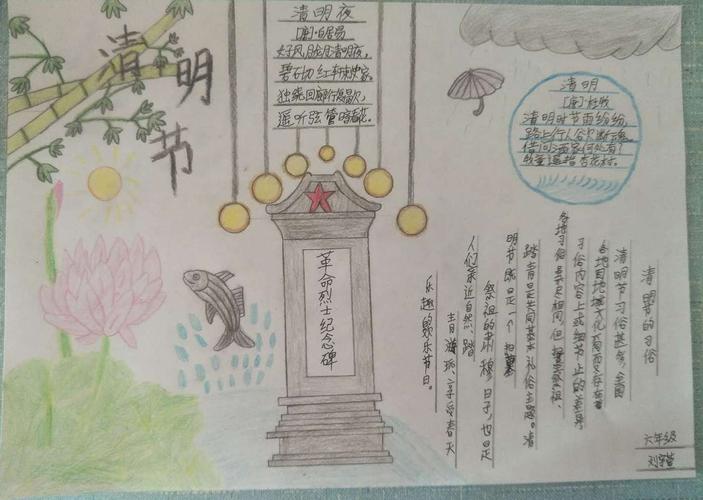 清明节
清明夜
[唐]·白居易
好风胧月清明夜，
碧石切红轩刺史家。
独绕回廊行复歇，
遥听弦管暗看花。
清明
[唐]·杜牧
清明时节雨纷纷，
路上行人欲断魂。
借问酒家何处有？
牧童遥指杏花村。
革命烈士纪念碑
清明节的习俗
清明节习俗甚多，全国
各地因地域文化不同而又存在着
习俗内容上或细节上的差异，
各地习俗虽不尽相同，但扫墓祭祖、
踏青是共同基本礼俗主题。清
明节既是一个扫墓
祭祖的肃穆日子，也是
人们亲近自然、踏
青游玩、享受春天
乐趣的欢乐节日。
六年级
刘宇萱